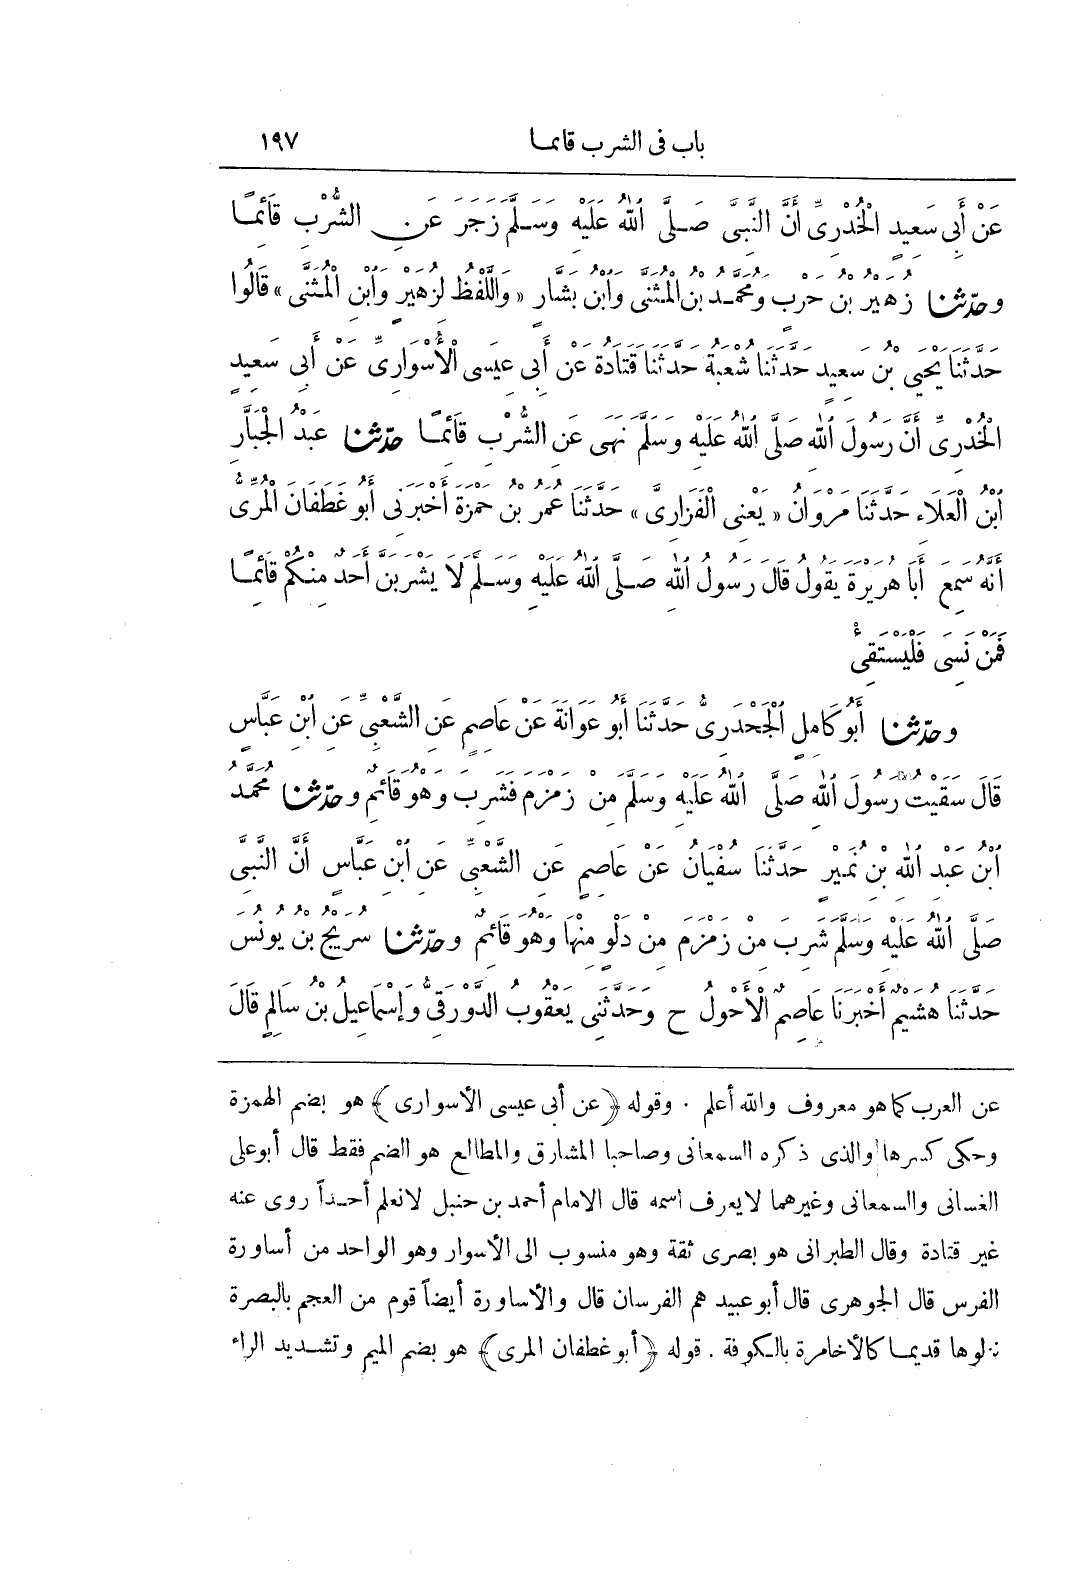 باب فى الشرب قائما ١٩٧
عَنْ أَبِى سَعِيدٍ الْخُدْرِىِّ أَنَّ النَّبِىَّ صَلَّى اللهُ عَلَيْهِ وَسَلَّمَ زَجَرَ عَنِ الشُّرْبِ قَائِمًا
وحدّثنا زُهَيْرُ بْنُ حَرْبٍ وَمُحَمَّدُ بْنُ الْمُثَنَّى وَابْنُ بَشَّارٍ «وَاللَّفْظُ لِزُهَيْرٍ وَابْنِ الْمُثَنَّى» قَالُوا
حَدَّثَنَا يَحْيَى بْنُ سَعِيدٍ حَدَّثَنَا شُعْبَةُ حَدَّثَنَا قَتَادَةُ عَنْ أَبِى عِيسَى الْأُسْوَارِىِّ عَنْ أَبِى سَعِيدٍ
الْخُدْرِىِّ أَنَّ رَسُولَ اللهِ صَلَّى اللهُ عَلَيْهِ وَسَلَّمَ نَهَى عَنِ الشُّرْبِ قَائِمًا حدّثنا عَبْدُ الْجَبَّارِ
ابْنُ الْعَلَاءِ حَدَّثَنَا مَرْوَانُ «يَعْنِى الْفَزَارِىَّ» حَدَّثَنَا عُمَرُ بْنُ حَمْزَةَ أَخْبَرَنِى أَبُو غَطَفَانَ الْمُرِّىُّ
أَنَّهُ سَمِعَ أَبَا هُرَيْرَةَ يَقُولُ قَالَ رَسُولُ اللهِ صَلَّى اللهُ عَلَيْهِ وَسَلَّمَ لَا يَشْرَبَنَّ أَحَدٌ مِنْكُمْ قَائِمًا
فَمَنْ نَسِىَ فَلْيَسْتَقِئْ
وحدّثنا أَبُو كَامِلٍ الْجَحْدَرِىُّ حَدَّثَنَا أَبُو عَوَانَةَ عَنْ عَاصِمٍ عَنِ الشَّعْبِىِّ عَنِ ابْنِ عَبَّاسٍ
قَالَ سَقَيْتُ رَسُولَ اللهِ صَلَّى اللهُ عَلَيْهِ وَسَلَّمَ مِنْ زَمْزَمَ فَشَرِبَ وَهُوَ قَائِمٌ وحدّثنا مُحَمَّدُ
ابْنُ عَبْدِ اللهِ بْنِ نُمَيْرٍ حَدَّثَنَا سُفْيَانُ عَنْ عَاصِمٍ عَنِ الشَّعْبِىِّ عَنِ ابْنِ عَبَّاسٍ أَنَّ النَّبِىَّ
صَلَّى اللهُ عَلَيْهِ وَسَلَّمَ شَرِبَ مِنْ زَمْزَمَ مِنْ دَلْوٍ مِنْهَا وَهُوَ قَائِمٌ وحدّثنا سُرَيْجُ بْنُ يُونُسَ
حَدَّثَنَا هُشَيْمٌ أَخْبَرَنَا عَاصِمٌ الْأَحْوَلُ ح وَحَدَّثَنِى يَعْقُوبُ الدَّوْرَقِىُّ وَإِسْمَاعِيلُ بْنُ سَالِمٍ قَالَ
عن العرب كما هو معروف والله أعلم . وقوله ﴿عن أبى عيسى الأسوارى﴾ هو بضم الهمزة
وحكى كسرها والذى ذكره السمعانى وصاحبا المشارق والمطالع هو الضم فقط قال أبو على
الغسانى والسمعانى وغيرهما لا يعرف اسمه قال الامام أحمد بن حنبل لا نعلم أحداً روى عنه
غير قتادة وقال الطبرانى هو بصرى ثقة وهو منسوب الى الأسوار وهو الواحد من أساورة
الفرس قال الجوهرى قال أبو عبيد هم الفرسان قال والأساورة أيضاً قوم من العجم بالبصرة
نزلوها قديما كالأخامرة بالكوفة . قوله ﴿أبو غطفان المرى﴾ هو بضم الميم وتشديد الراء